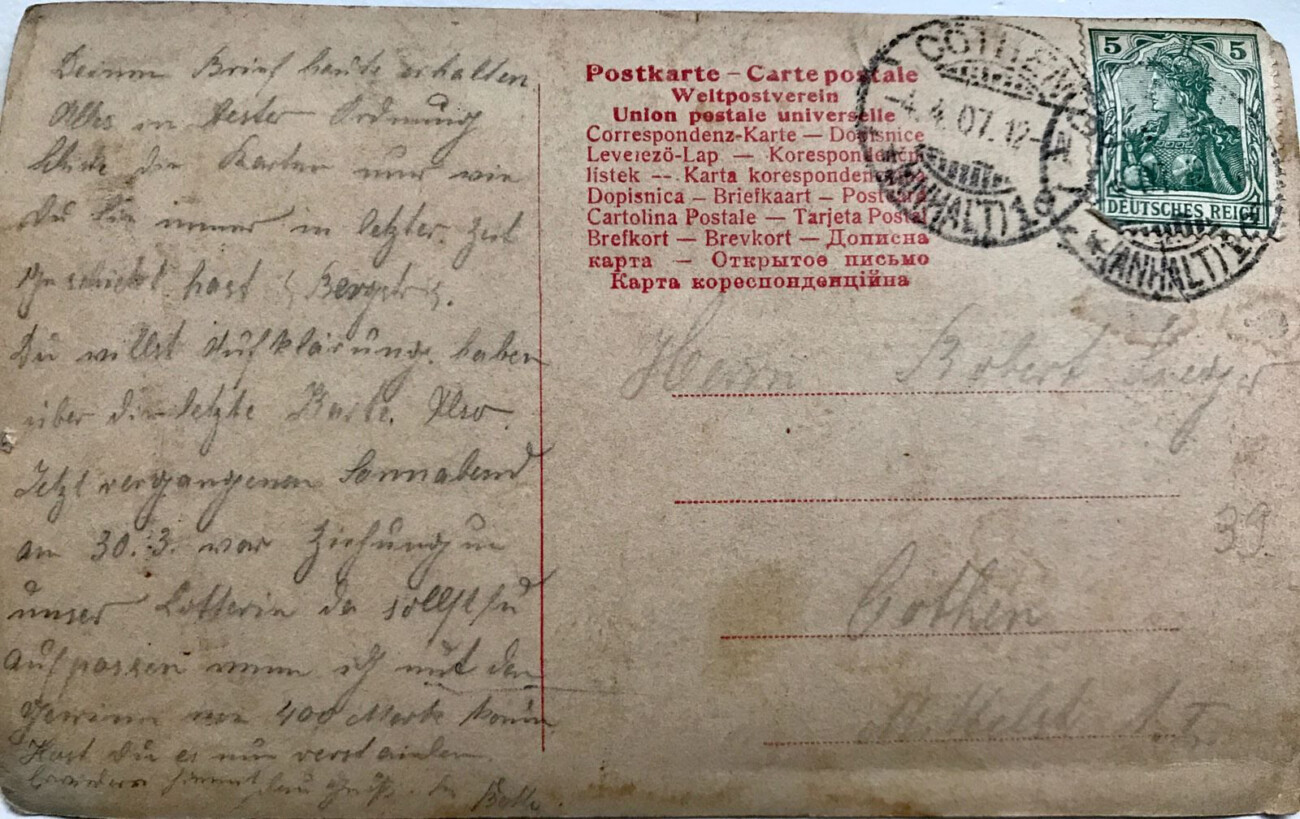 Deinen Brief heute erhalten
Alles in bester Ordnung
die Karten nur wie
Du sie immer in letzter Zeit
geschickt hast
Du willst Aufklärung haben
über die letzte Karte. Also
Jetzt vergangenen Sonnabend
am 30.3. war Ziehung in
unser Lotterie da sollst Du
aufpassen wenn ich mit den
Gewinn von 400 Mark komm
Hast Du es nun verstanden
Postkarte – Carte postale
Weltpostverein
Union postale universelle
Correspondenz-Karte — Dopisnice
Leverezö-Lap — Korespondenční
listek -- Karta korespondencyjna
Dopisnica — Briefkaart — Postcard
Cartolina Postale — Tarjeta Postal
Brefkort — Brevkort — Дописна
карта — Открытое письмо
Карта кореспонденційна
CÖTHEN
-4.4.07. 12-
(ANHALT) 1
5 5
DEUTSCHES REICH
(ANHALT) 1
Herrn Robert
39.
Cöthen